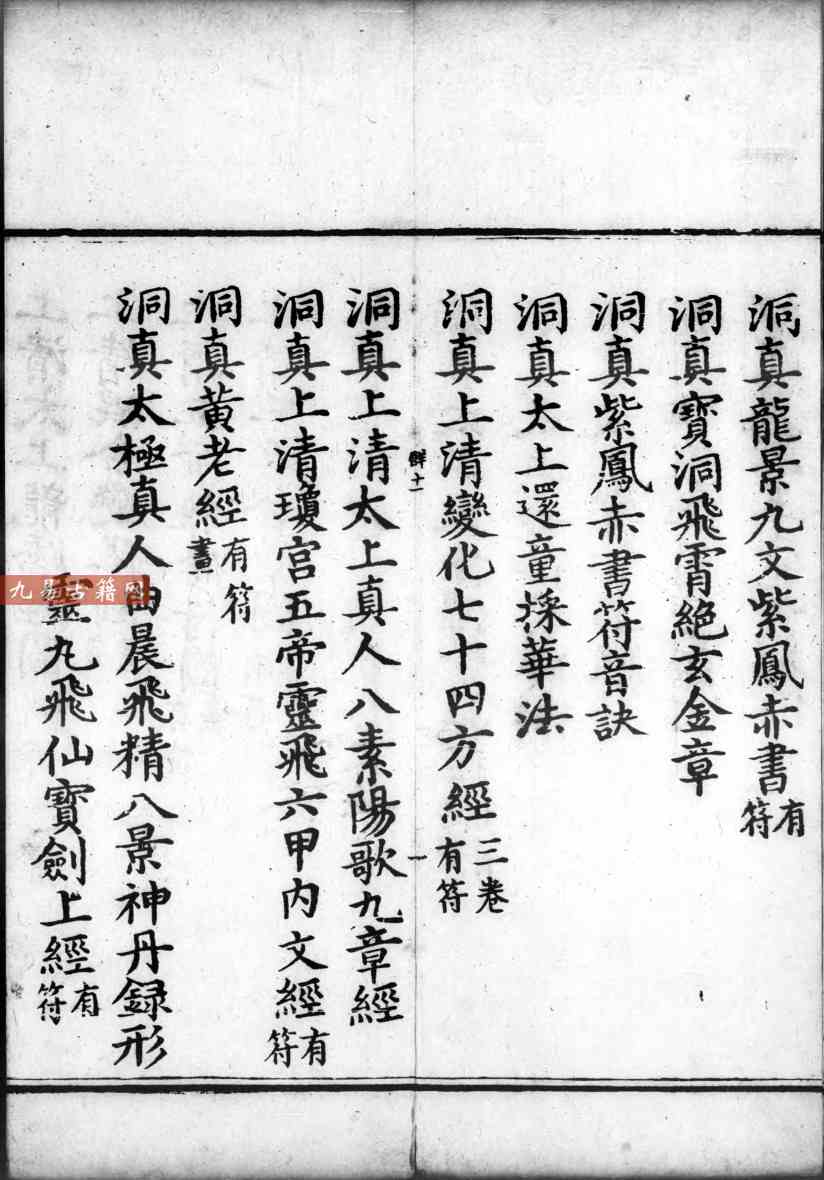 洞真龍景九文紫鳳赤書有符
洞真寶洞飛霄絕玄金章
洞真紫鳳赤書符音訣
洞真太上還童採華法
洞真上清變化七十四方經三卷有符
洞真上清太上真人八素陽歌九章經
洞真上清瓊宮五帝靈飛六甲內文經有符
洞真黃老經有符畫
洞真太極真人曲晨飛精八景神丹録形
靈丸飛仙寶劍上經有符
九易古籍网